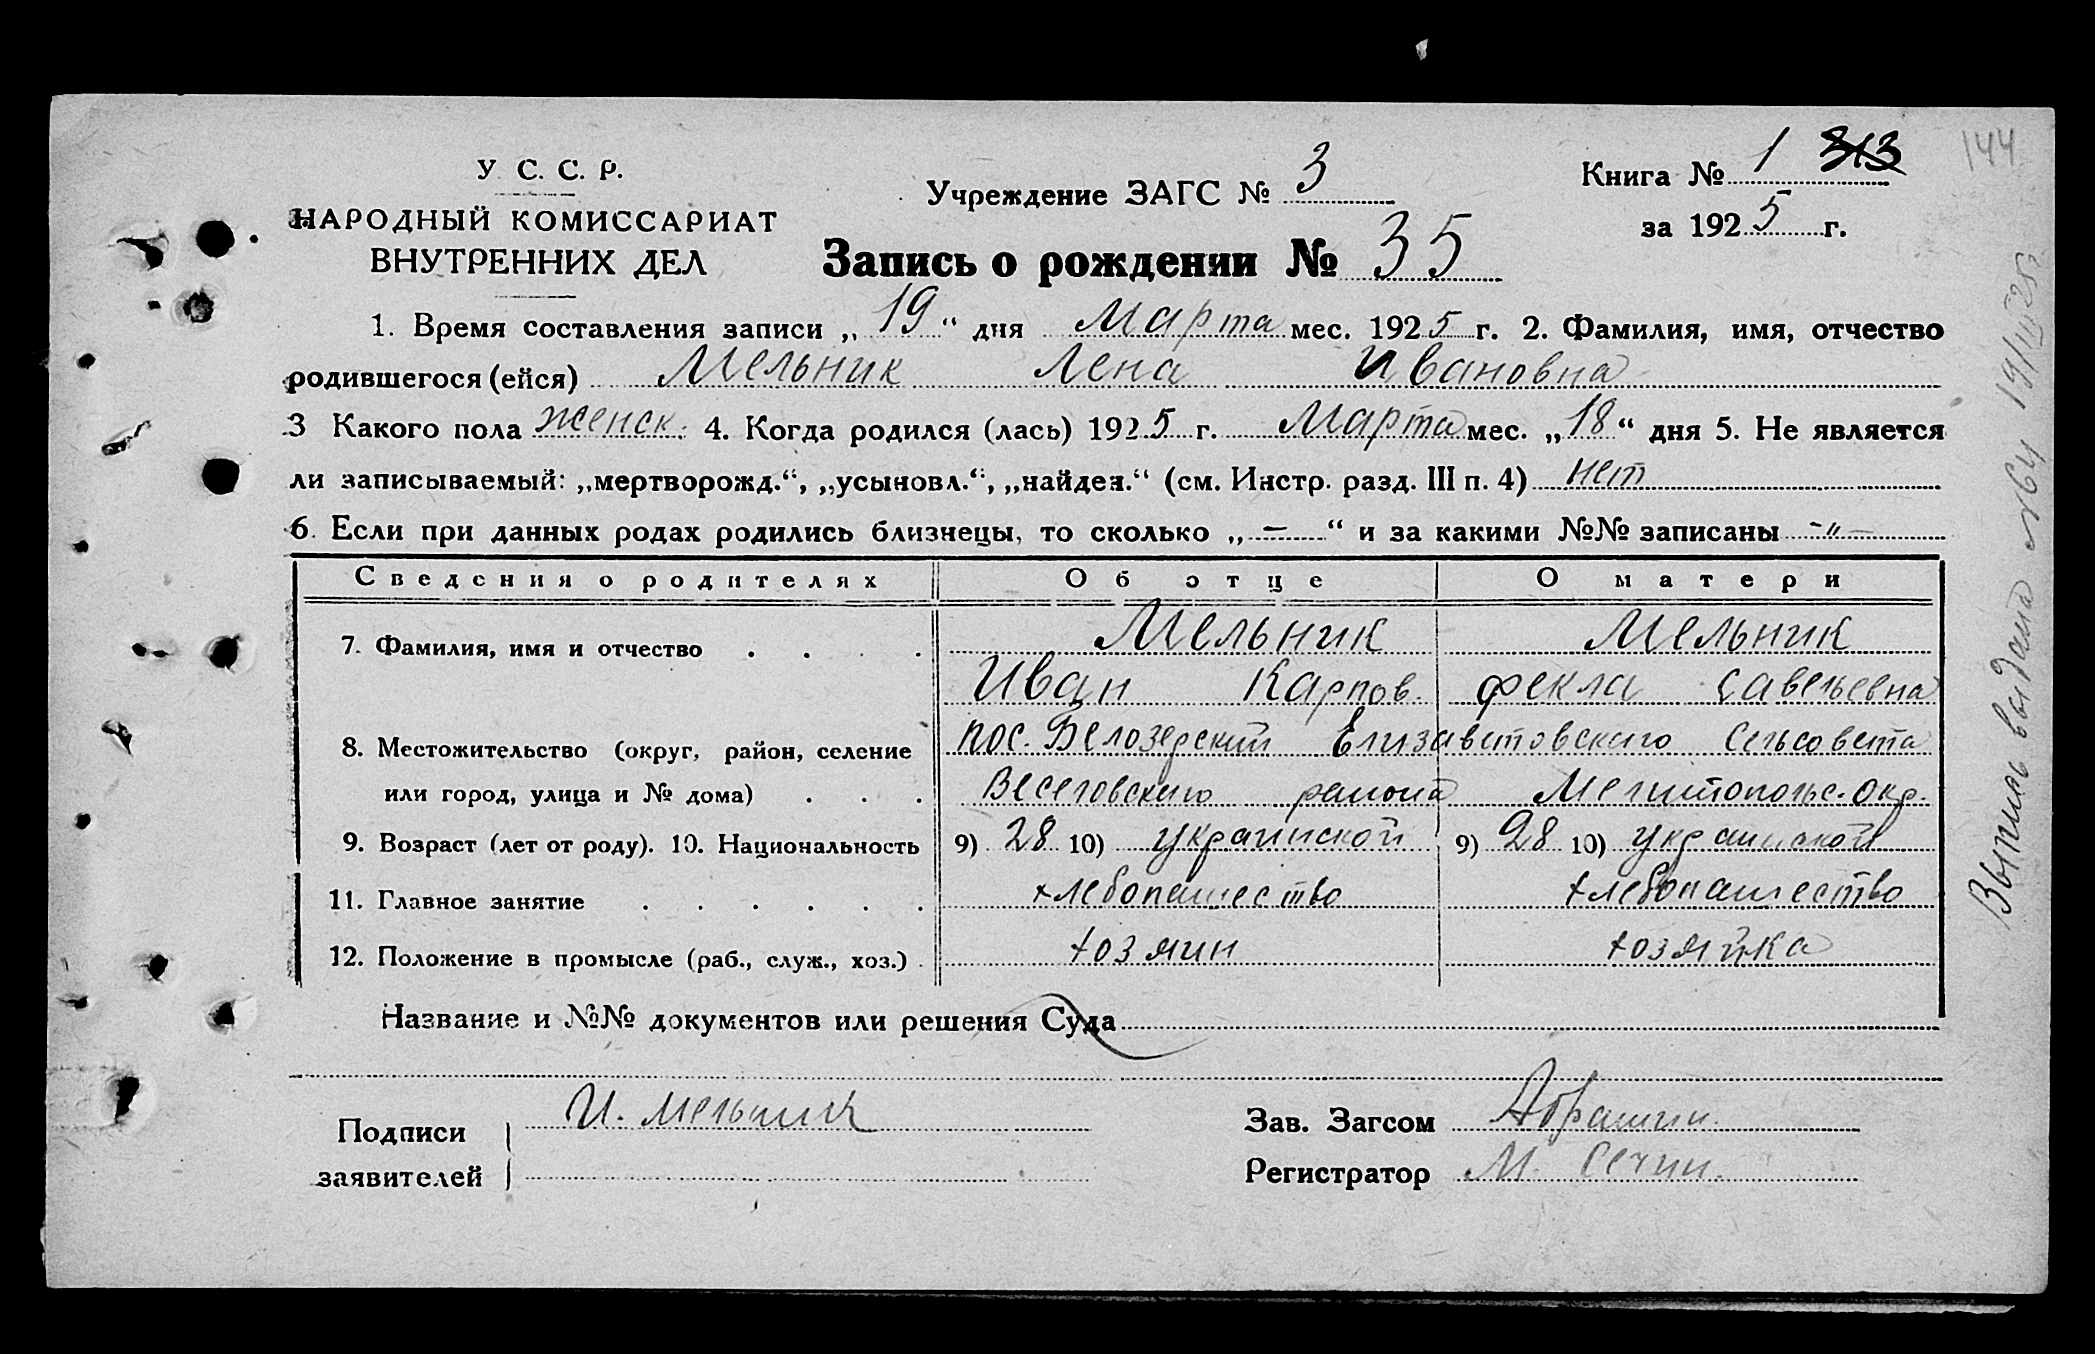 У. С. С. Р.
НАРОДНЫЙ КОМИССАРИАТ
ВНУТРЕННИХ ДЕЛ
Учреждение ЗАГС № 3
Книга № 1 313
144
за 1925 г.
Запись о рождении № 35
1. Время составления записи „19“ дня Марта мес. 1925 г. 2. Фамилия, имя, отчество
родившегося (ейся) Мельник Лена Ивановна
3 Какого пола женск. 4. Когда родился (лась) 1925 г. Марта мес. „18“ дня 5. Не является
ли записываемый: „мертворожд.“, „усыновл.“, „найден.“ (см. Инстр. разд. III п. 4) нет
6. Если при данных родах родились близнецы, то сколько „—“ и за какими №№ записаны -"-
Сведения о родителях Об отце О матери
7. Фамилия, имя и отчество Мельник Мельник
Иван Карпов. Фекла Савельевна
8. Местожительство (округ, район, селение пос. Белозерский Елизаветовского сельсовета
или город, улица и № дома) Веселовского района Мелитопольс. окр.
9. Возраст (лет от роду). 10. Национальность 9) 28 10) украинской 9) 28 10) украинской
11. Главное занятие хлебопашество хлебопашество
12. Положение в промысле (раб., служ., хоз.) хозяин хозяйка
Название и №№ документов или решения Суда
Подписи И. Мельник
заявителей
Зав. Загсом Абрашин
Регистратор М. Сечин.
Выпись выдана №64 19/III 25г.